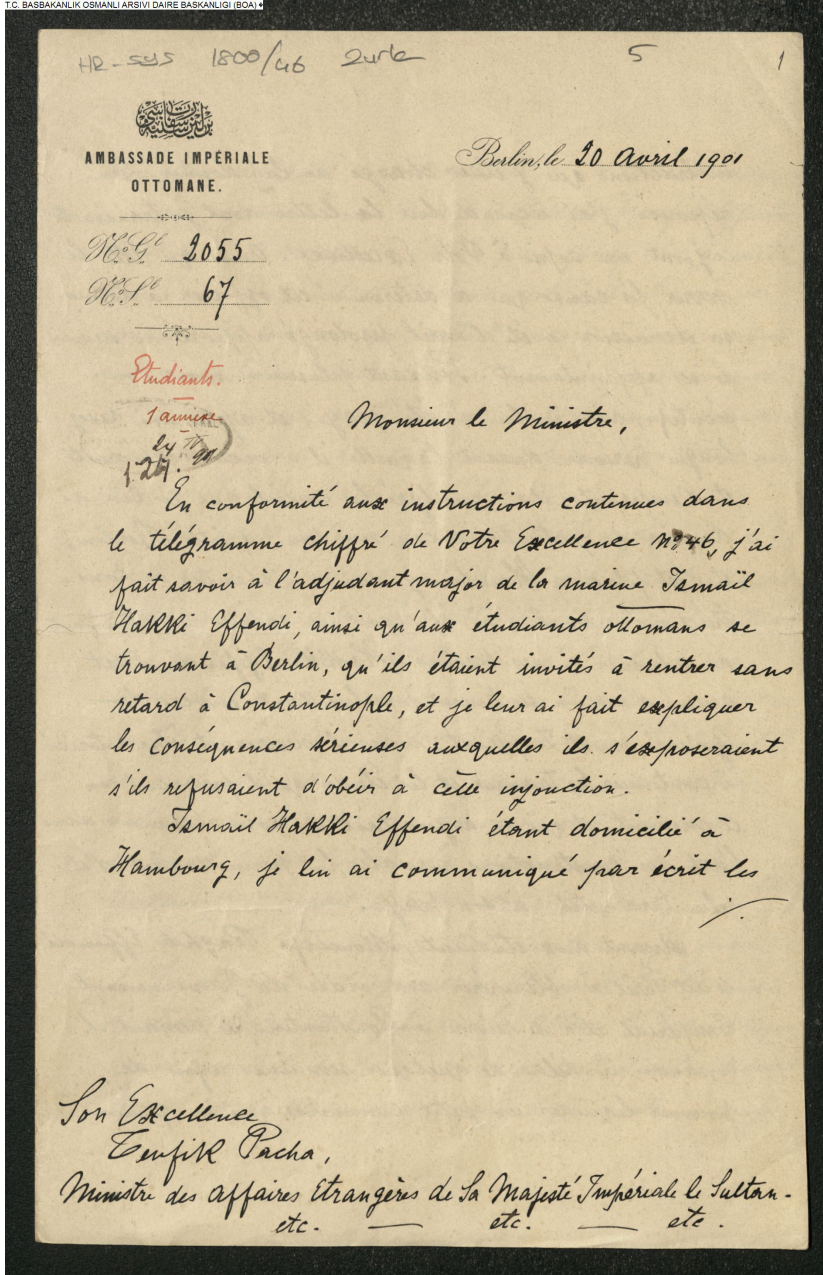 T.C. BASBAKANLIK OSMANLI ARSIVI DAIRE BASKANLIGI (BOA)
HR-SYS 1800/46 5 1
AMBASSADE IMPÉRIALE
OTTOMANE.
Berlin, le 20 Avril 1901
No. Gl 2055
No. Sl 67
Etudiants.
1 annexe
24 IV
Monsieur le Ministre,
En conformité aux instructions contenues dans
le télégramme chiffré de Votre Excellence No 46, j'ai
fait savoir à l'adjudant major de la marine Ismaïl
Hakki Effendi, ainsi qu'aux étudiants ottomans se
trouvant à Berlin, qu'ils étaient invités à rentrer sans
retard à Constantinople, et je leur ai fait expliquer
les conséquences sérieuses auxquelles ils s'exposeraient
s'ils refusaient d'obéir à cette injonction.
Ismaïl Hakki Effendi étant domicilié à
Hambourg, je lui ai communiqué par écrit les
./.
Son Excellence
Tewfik Pacha,
Ministre des Affaires Etrangères de Sa Majesté Impériale le Sultan-
etc. — etc. — etc.